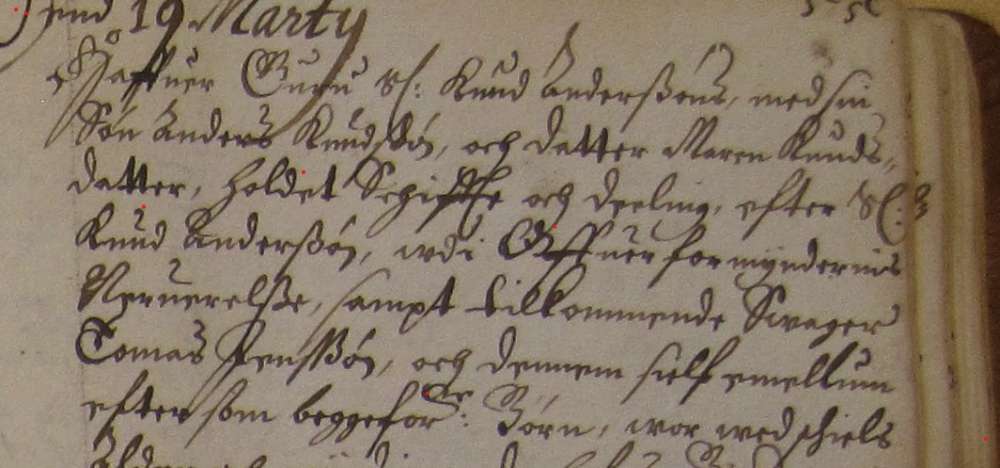 19 Marty
Haffuer Guru Sl: Knud Anderßøns, med sin
Søn Anders Knudßøn, och datter Maren Knuds,,
datter, holdet Schiffte och deeling, efter Sl:
Knud Anderßøn, udi Offuerformynderens
Neruerelße, sampt tilkommende Swager
Tomas Jenßøn, och dennem sielf emellum
eftersom begge for: Børn, wor wed schiels